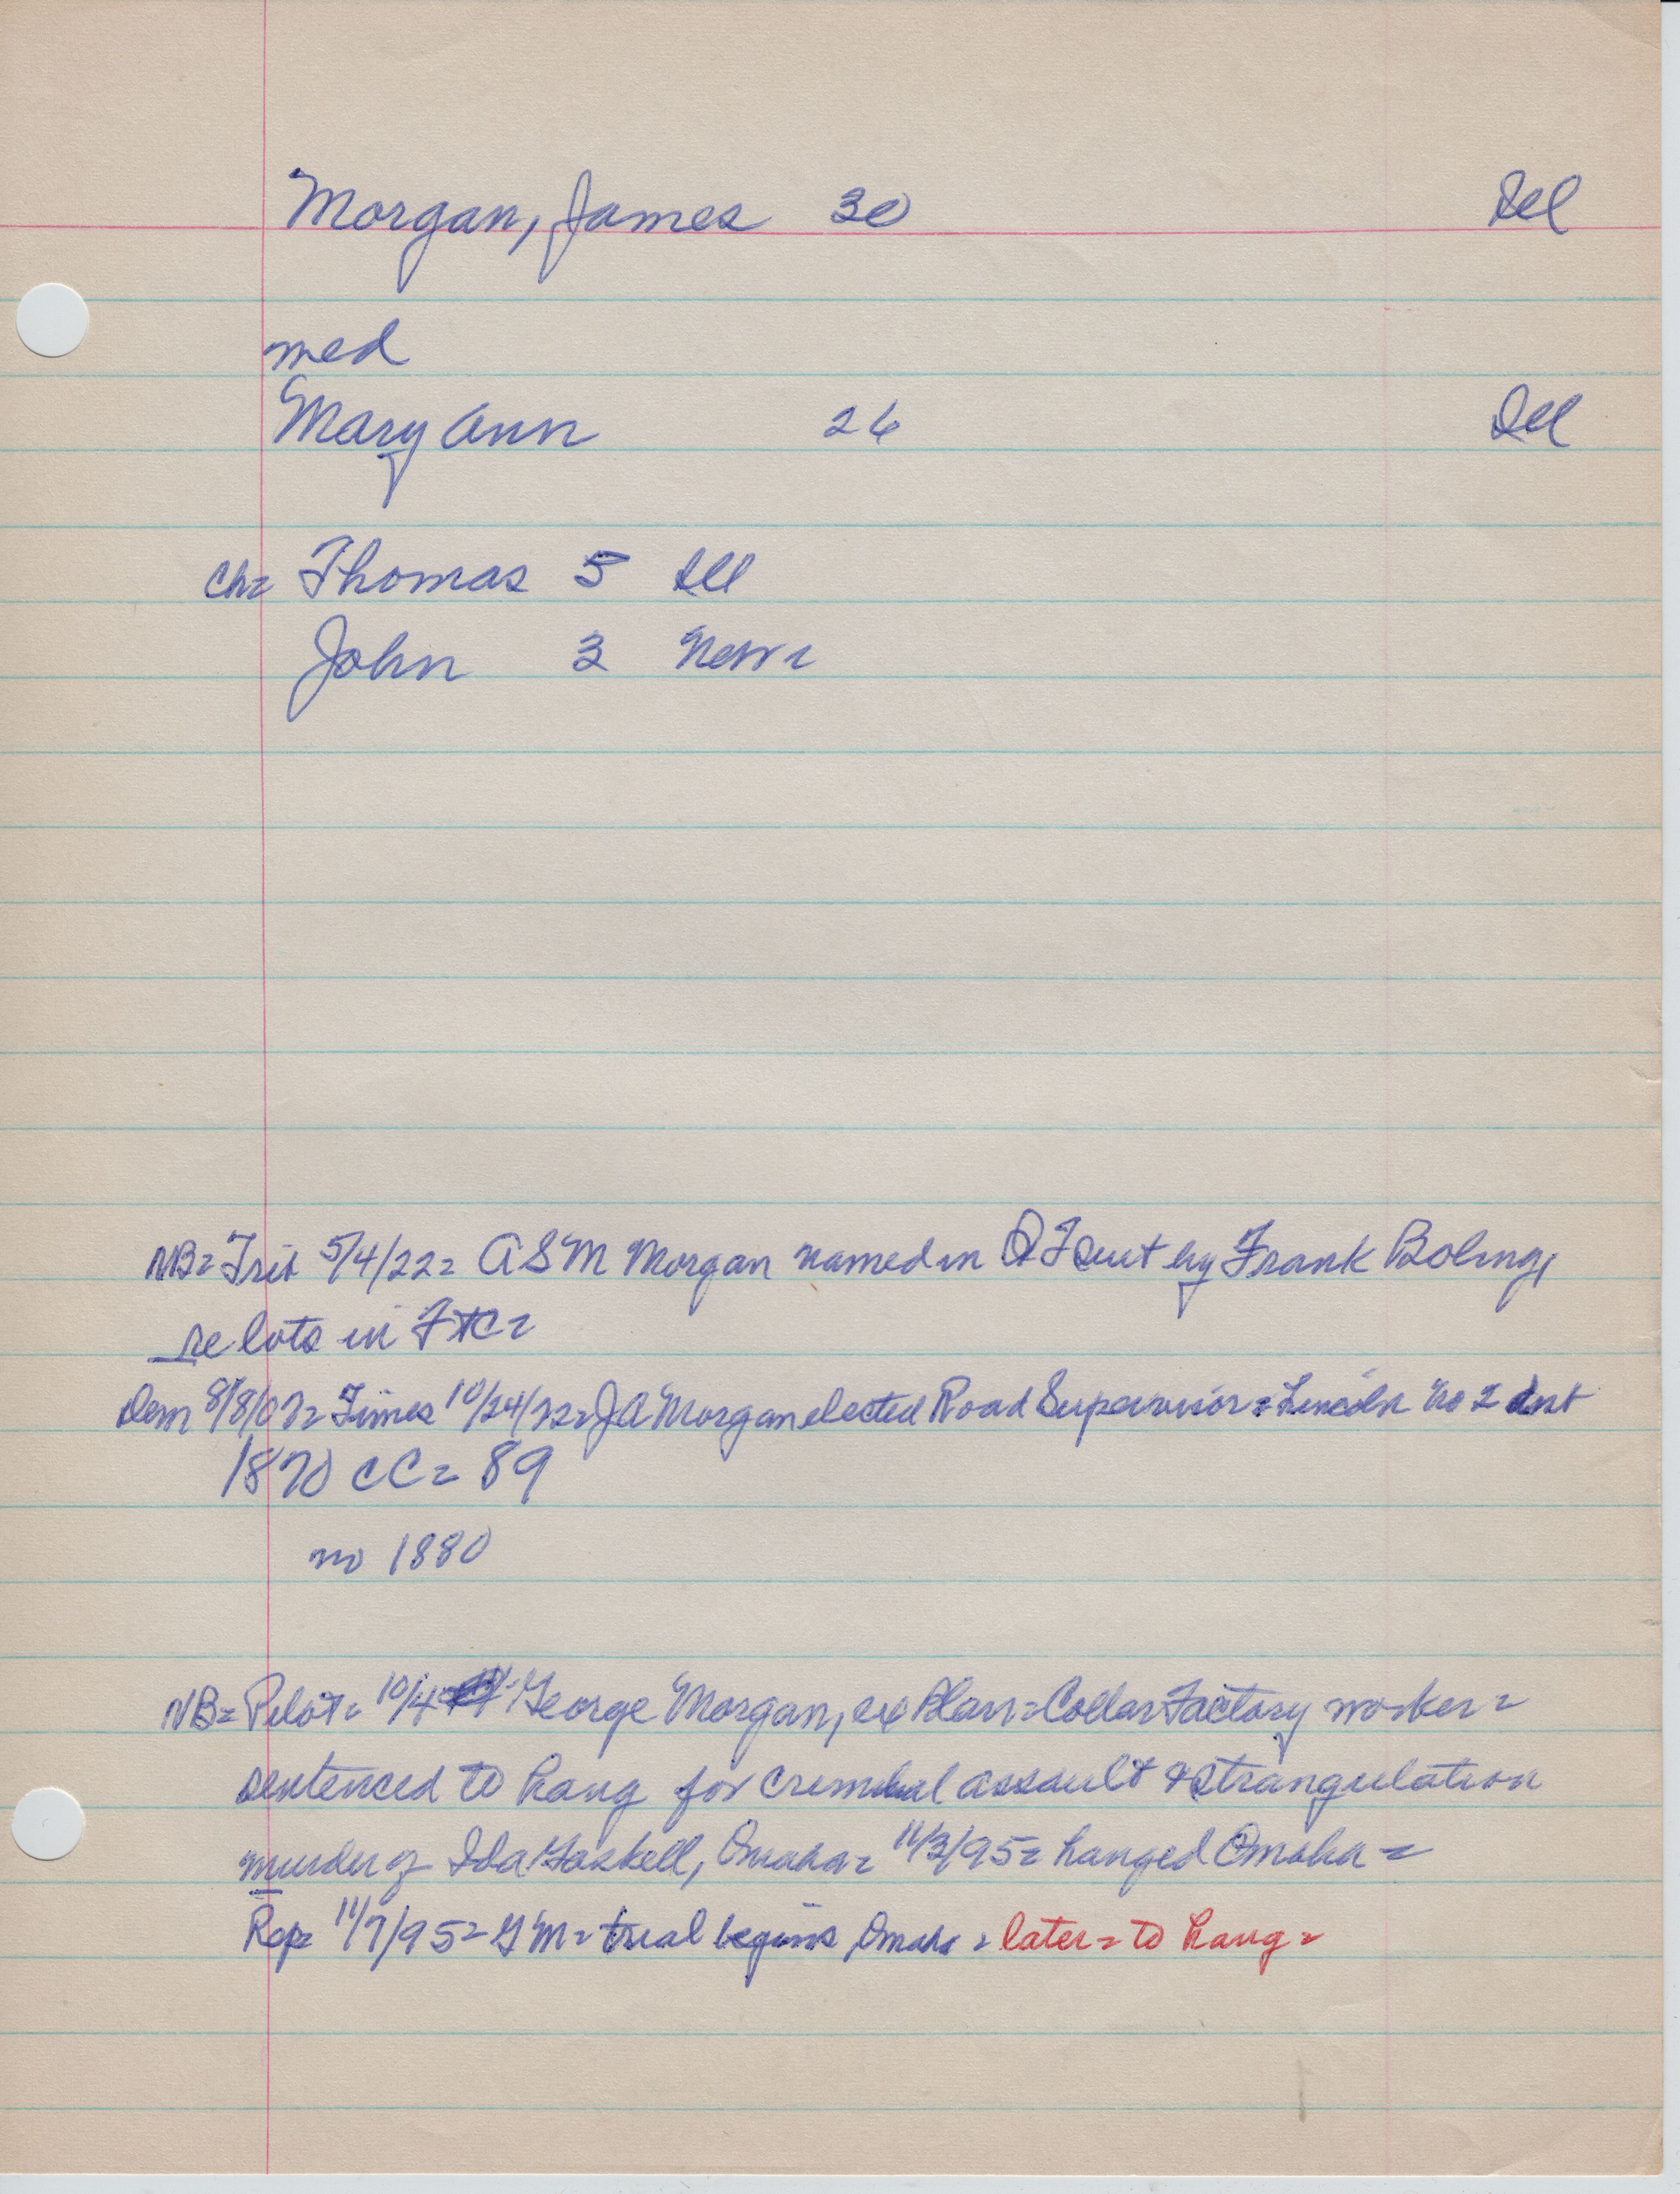 Morgan, James 30 Ill
med
Mary Ann 26 Ill
Ch= Thomas 5 Ill
John 3 Nebr=
NB= Trib 5/4/22= A S M Morgan named in Q T suit by Frank Boling,
re lots in FtC=
Dem 8/8/07= Times 10/24/72= J A Morgan elected Road Supervisor= Lincoln no 2 dist
1870 CC= 89
no 1880
NB= Pilot= 10/4 George Morgan, ex Blair= Collar Factory worker=
sentenced to hang for criminal assault & strangulation
murder of Ida Gaskell, Omaha= 11/3/95= hanged Omaha=
Rep= 11/7/95= GM= trial begins, Omaha= later= to hang=